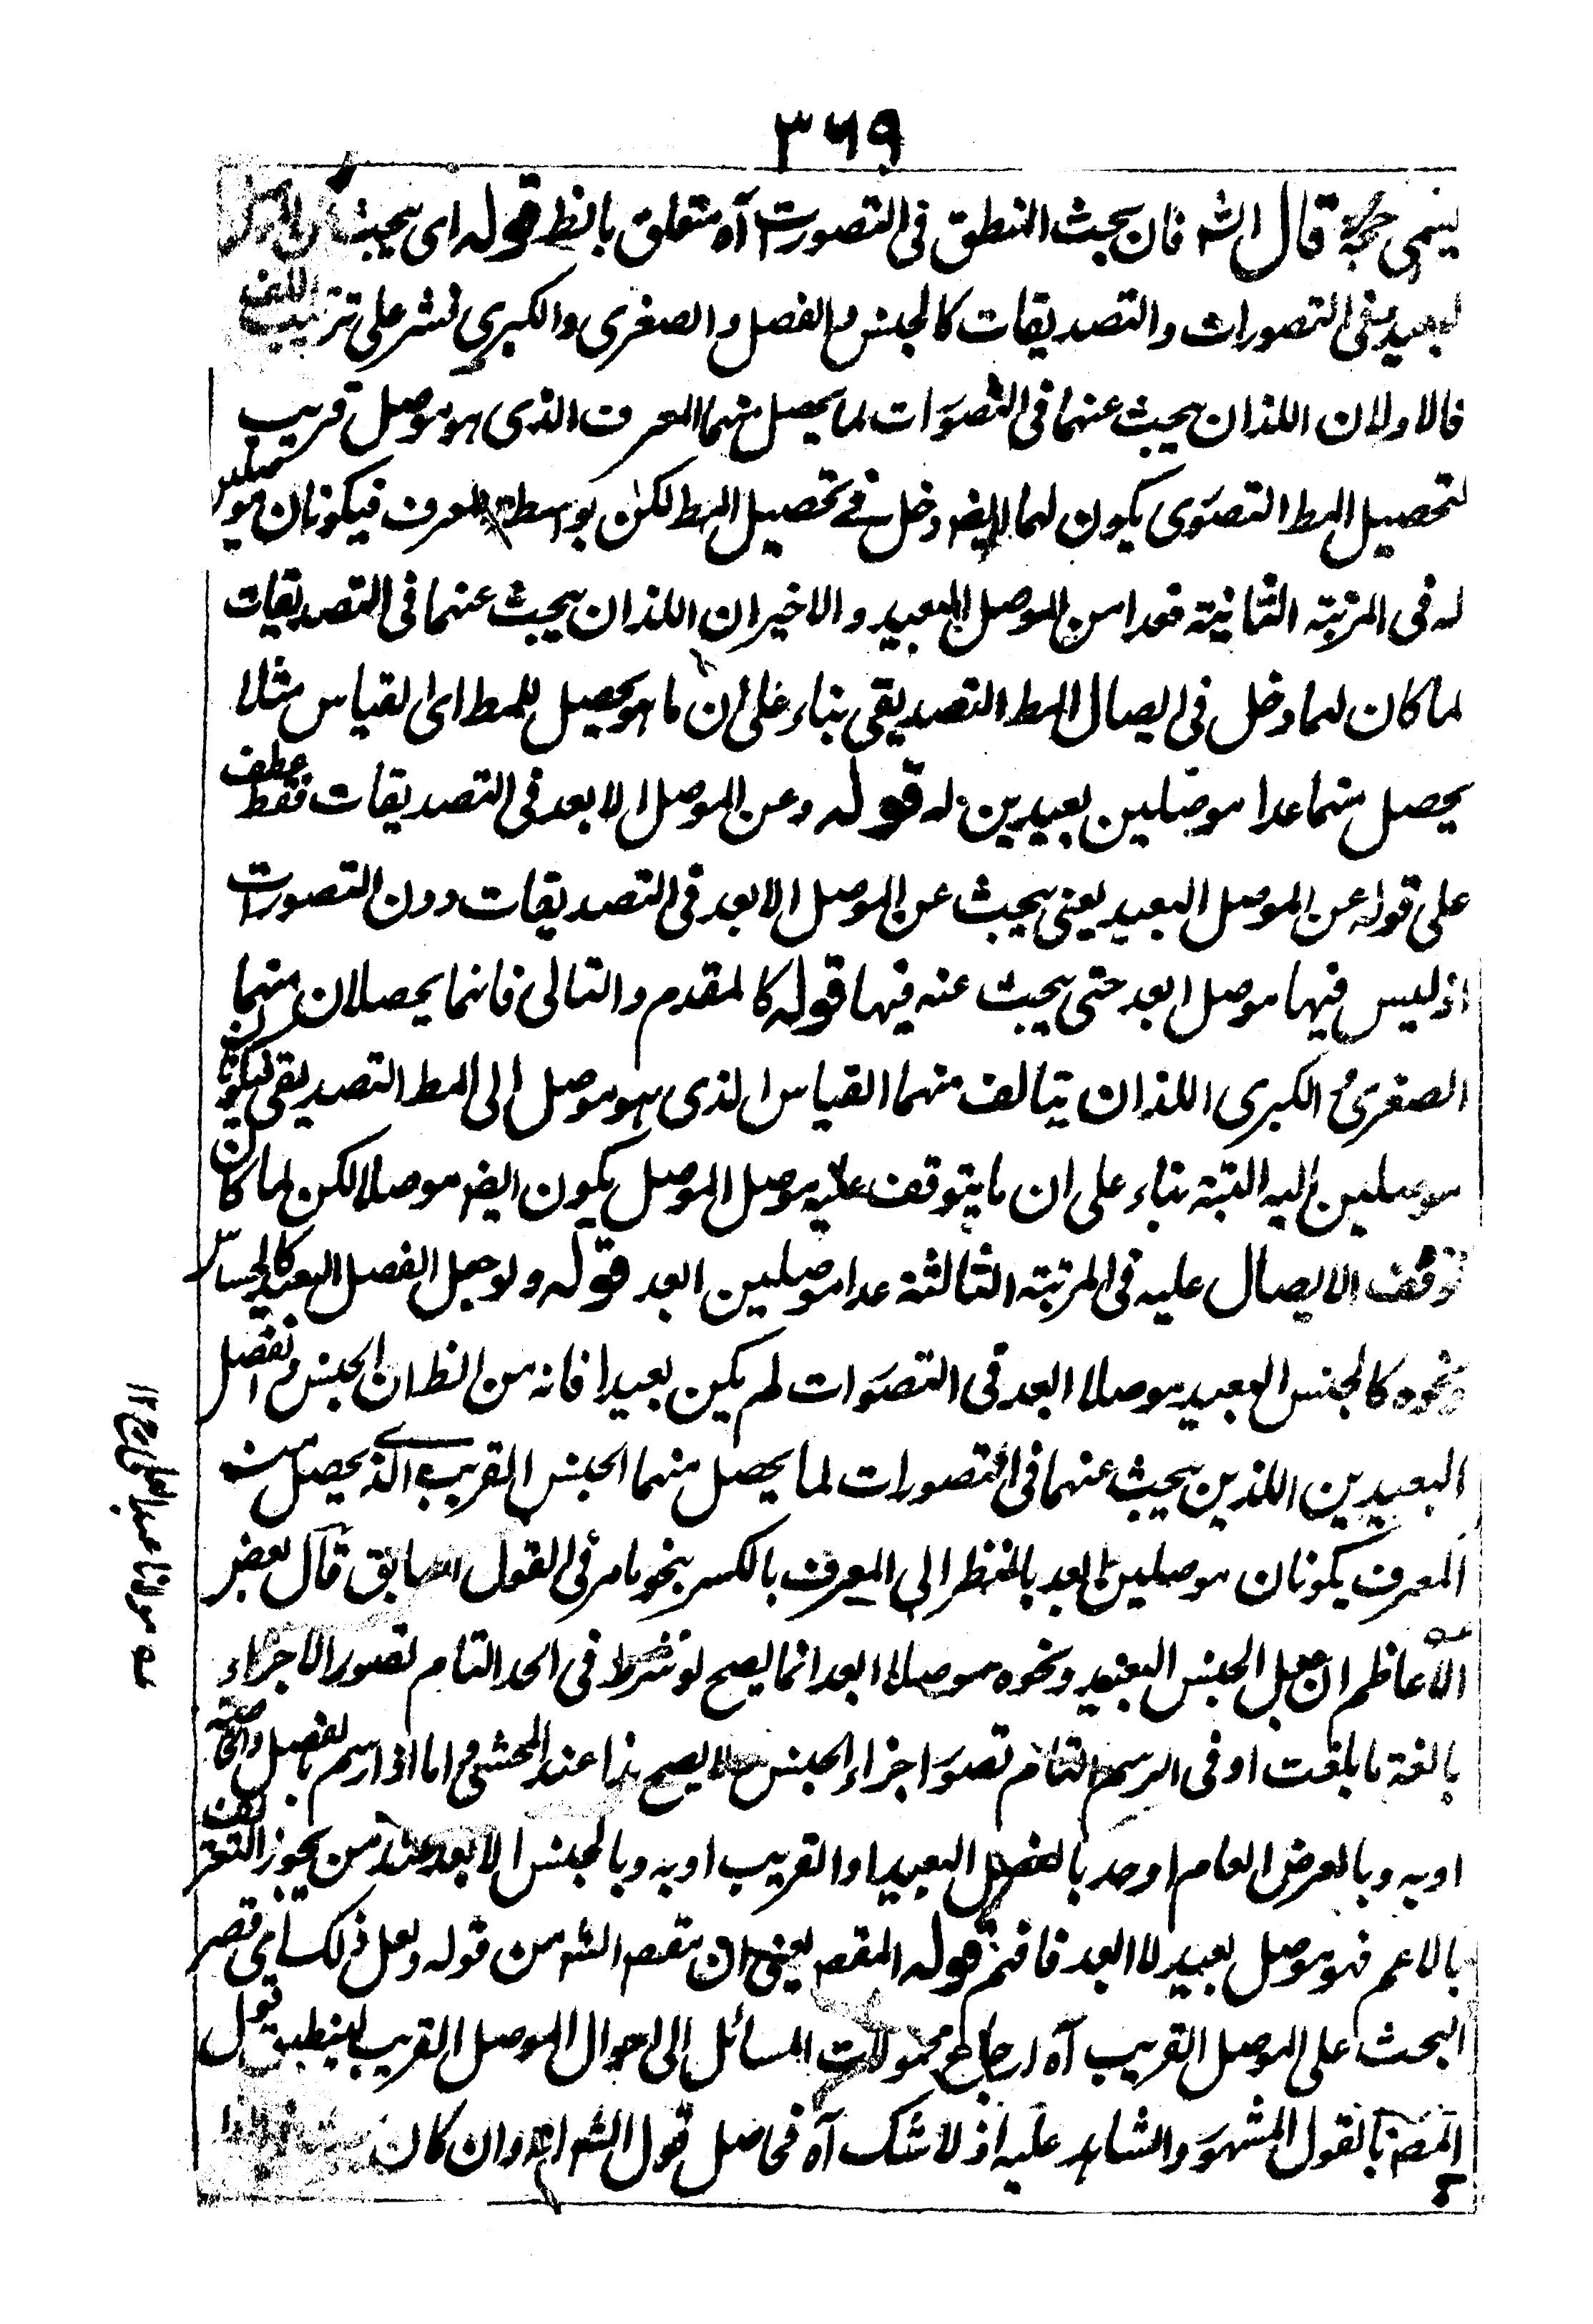 ٣٦٩
يسمى حجة قال الشه فان بحث المنطق فى التصورات آه متعلق بالنظ قوله اى يبحث عن
البعيد منفى التصورات والتصديقات كالجنس والفصل والصغرى والكبرى نشر على ترتيب اللف
فالاولان اللذان يبحث عنهما فى التصورات لما يحصل منهما المعرف الذى هو موصل قريب
لتحصيل المط التصورى يكون لهما ايضه دخل فے تحصيل المط لكن بواسطة المعرف فيكونان موصلين
له فى المرتبة الثانية فعدا من الموصل البعيد والاخيران اللذان يبحث عنهما فى التصديقات
لما كان لهما دخل فى ايصال المط التصديقى بناء على ان ما هو يحصيل للمط اى القياس مثلا
يحصل منهما عدا موصلين بعيدين له قوله وعن الموصل الا بعد فى التصديقات فقط عطف
على قوله عن الموصل البعيد يعنى يبحث عن الموصل الابعد فى التصديقات دون التصورات
اذ ليس فيها موصل ابعد حتى يبحث عنه فيها قوله كالمقدم والتالى فانهما يحصلان منهما
الصغرى والكبرى اللذان يتالف منهما القياس الذى هو موصل الى المط التصديقى فيكونان
موصلين اليه البتة بناء على ان ما يتوقف عليه موصل الموصل يكون ايضه موصلا لكن لما كان
توقف الايصال عليه فى المرتبة الثالثة عدا موصلين ابعد قوله ولو جعل الفصل البعيد كالحساس
ونحوه كالجنس البعيد موصلا ابعد فى التصورات لم يكن بعيدا فانه من الظ ان الجنس والفصل
البعيدين اللذين يبحث عنهما فى التصورات لما يحصل منهما الجنس القريب الذى يحصل منه
المعرف يكونان موصلين ابعد بالنظر الى المعرف بالكسر بنحو ما مر فى القول السابق قال بعض
الاعاظم ان جعل الجنس البعيد ونحوه موصلا ابعد انما يصح لو شرط فى الحد التام تصور الاجزاء
بالغة ما بلغت او فى الرسم التام تصور اجزاء الجنس ولا يصح هذا عند المحشى واما اذا رسم بالفصل والخاصة
او به وبالعرض العام او حد بالفصل البعيد او القريب او به وبالجنس الا بعد عند من يجوز التعريف
بالاعم فهو موصل بعيد لا ابعد فافهم قوله المقصه يعنى ان مقصه الشه من قوله ولعل ذلك اى قصر
البحث على الموصل القريب آه ارجاع محمولات المسائل الى احوال الموصل القريب لينطبق قول
المصه بالقول المشهور والشاهد عليه اذ لا شك آه فحاصل قول الشه اه وان كان
مولانا عبد العلى رح ١٢